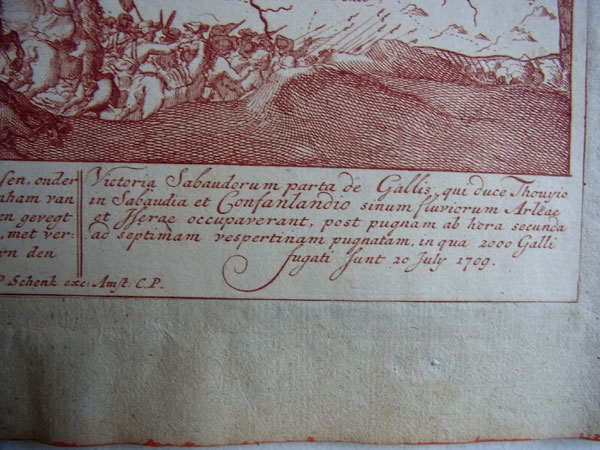 sen, onder
nham van
en gevegt
, met ver-
n den
Victoria Sabaudorum parta de Gallis, qui duce Thouyio
in Sabaudia et Confanlandio sinum fluviorum Arleae
et Iserae occupaverant, post pugnam ab hora secunda
ad septimam vespertinam pugnatam, in qua 2000 Galli
fugati sunt 20 July 1709.
P. Schenk exc: Amst: C.P.